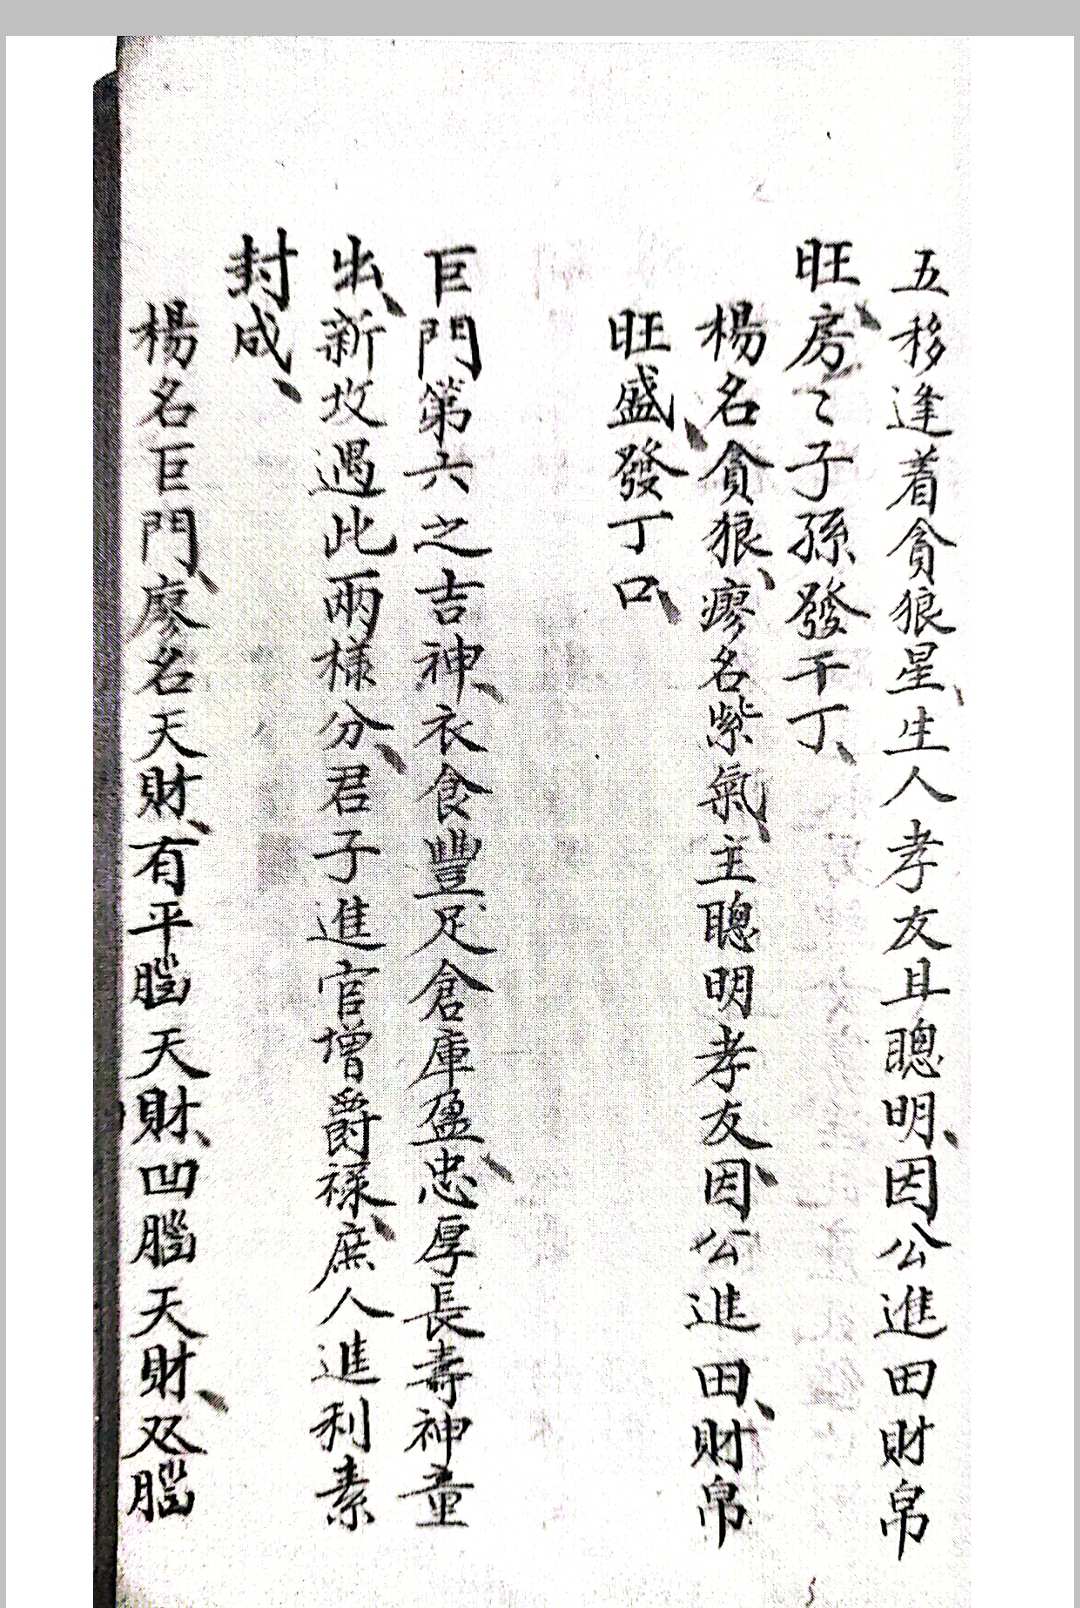 五移逢着貪狼星、生人孝友且聰明、因公進田財帛
旺、房〻子孫發千丁、
楊名貪狼、廖名紫氣、主聰明孝友、因公進田、財帛
旺盛、發丁口、
巨門第六之吉神、衣食豐足倉庫盈、忠厚長壽神童
出、新坟遇此兩樣分、君子進官增爵禄、庶人進利素
封成、
楊名巨門、廖名天財、有平腦天財、凹腦天財、双腦